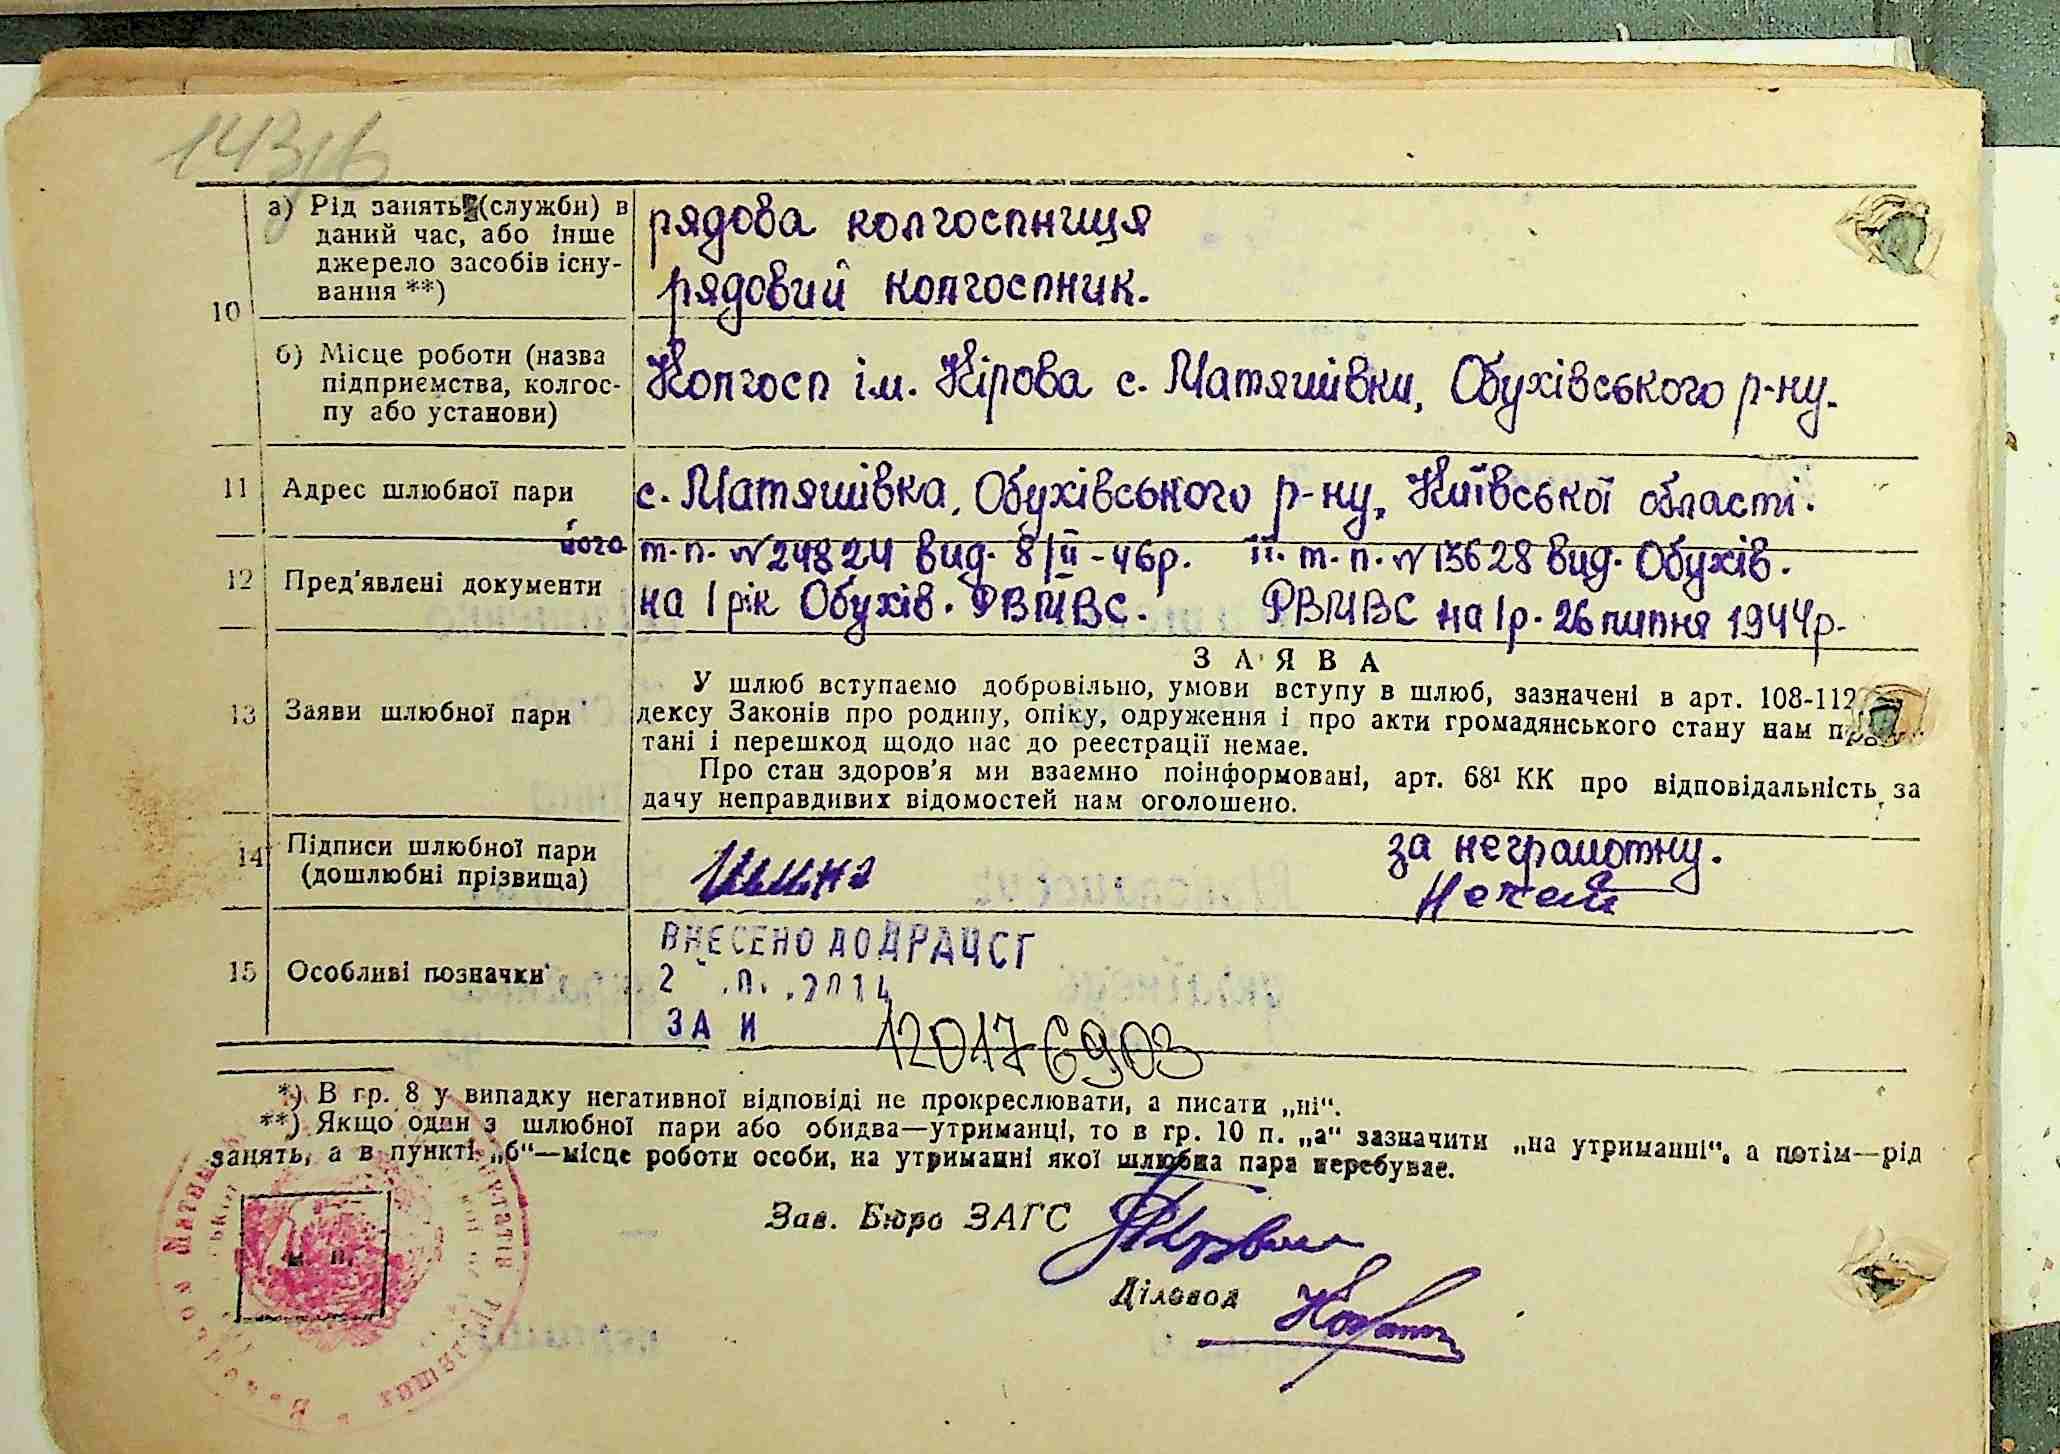 143/6
10
а) Рід занять (служби) в даний час, або інше джерело засобів існування **)
рядова колгоспниця
рядовий колгоспник.
б) Місце роботи (назва підприємства, колгоспу або установи)
Колгосп ім. Кірова с. Матяшівки, Обухівського р-ну.
11 Адрес шлюбної пари
с. Матяшівка, Обухівського р-ну, Київської області.
12 Пред'явлені документи
його т.п. № 24824 вид. 8/II-46р. її т.п. № 13628 вид. Обухів.
на 1 рік Обухів. РВМВС. РВМВС на 1р. 26 липня 1944р.
13 Заяви шлюбної пари
ЗАЯВА
У шлюб вступаємо добровільно, умови вступу в шлюб, зазначені в арт. 108-112
дексу Законів про родину, опіку, одруження і про акти громадянського стану нам
тані і перешкод щодо нас до реєстрації немає.
Про стан здоров'я ми взаємно поінформовані, арт. 68¹ КК про відповідальність за
дачу неправдивих відомостей нам оголошено.
14 Підписи шлюбної пари
(дошлюбні прізвища)
за неграмотну.
Нечай
15 Особливі позначки
ВНЕСЕНО ДО ДРАЦСГ
2 2014
ЗА И 120176903
*) В гр. 8 у випадку негативної відповіді не прокреслювати, а писати „ні“.
**) Якщо один з шлюбної пари або обидва—утриманці, то в гр. 10 п. „а“ зазначити „на утриманні“, а потім—рід
занять, а в пункті „б“—місце роботи особи, на утриманні якої шлюбна пара перебуває.
Зав. Бюро ЗАГС
Діловод
М. П.